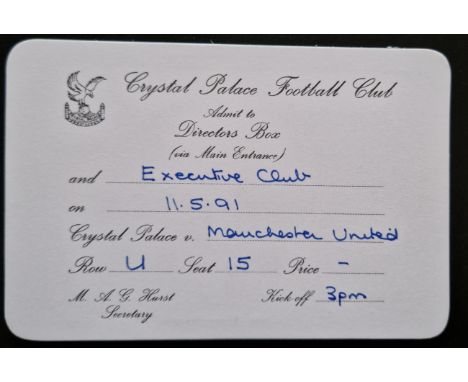 Crystal Palace Football Club
Admit to
Directors Box
(via Main Entrance)
and Executive Club
on 11.5.91
Crystal Palace v. Manchester United
Row U Seat 15 Price -
M. A. G. Hurst Kick off 3pm
Secretary